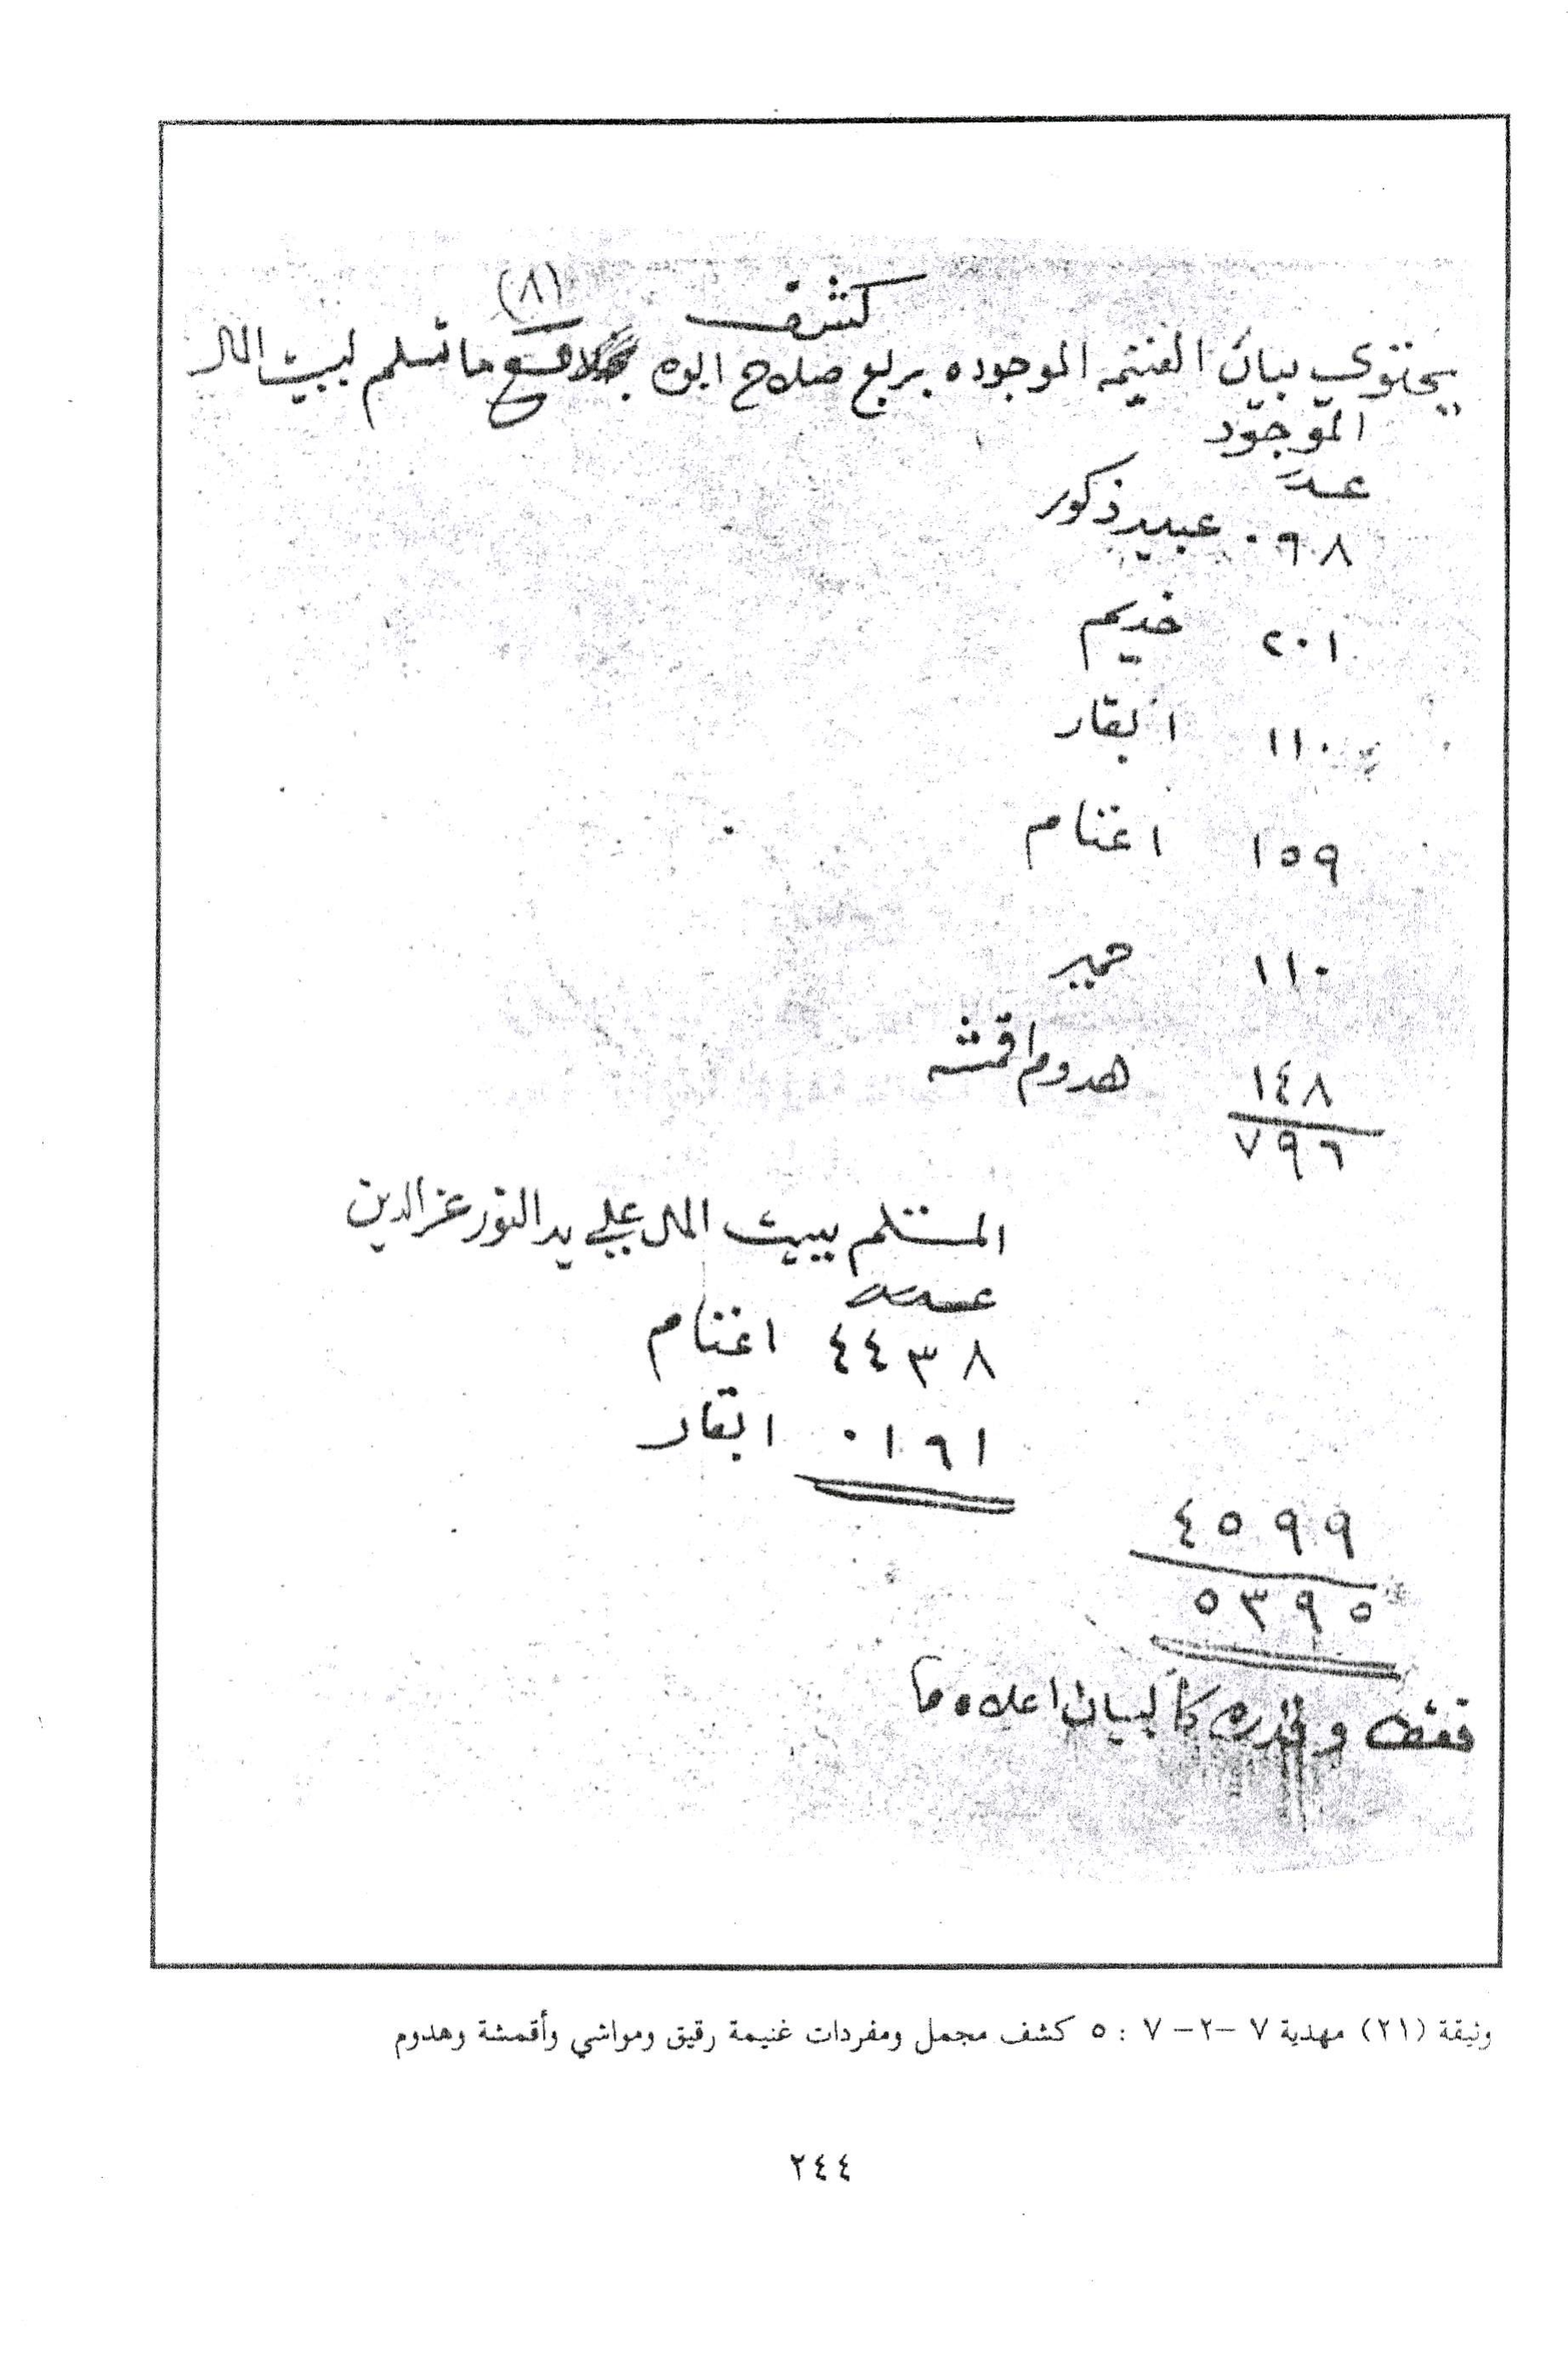 (٨)
كشف
يحتوي بيان الغنيمه الموجوده بربع صلاح ابوه مع ما تسلم لبيت المال
الموجود
عدد
٠٦٨ عبيد ذكور
٢٠١ خديم
١١٠ ابقار
١٥٩ اغنام
١١٠ حمير
١٤٨ هدوم اقمشه
٧٩٦
المستلم ببيت المال علي يد النور عز الدين
عدد
٤٤٣٨ اغنام
٠١٦١ ابقار
٤٥٩٩
٥٣٩٥
فقط وقدره كالبيان اعلاه
وثيقة (٢١) مهدية ٧ -٢- ٧ : ٥ كشف مجمل ومفردات غنيمة رقيق ومواشي وأقمشة وهدوم
٢٤٤